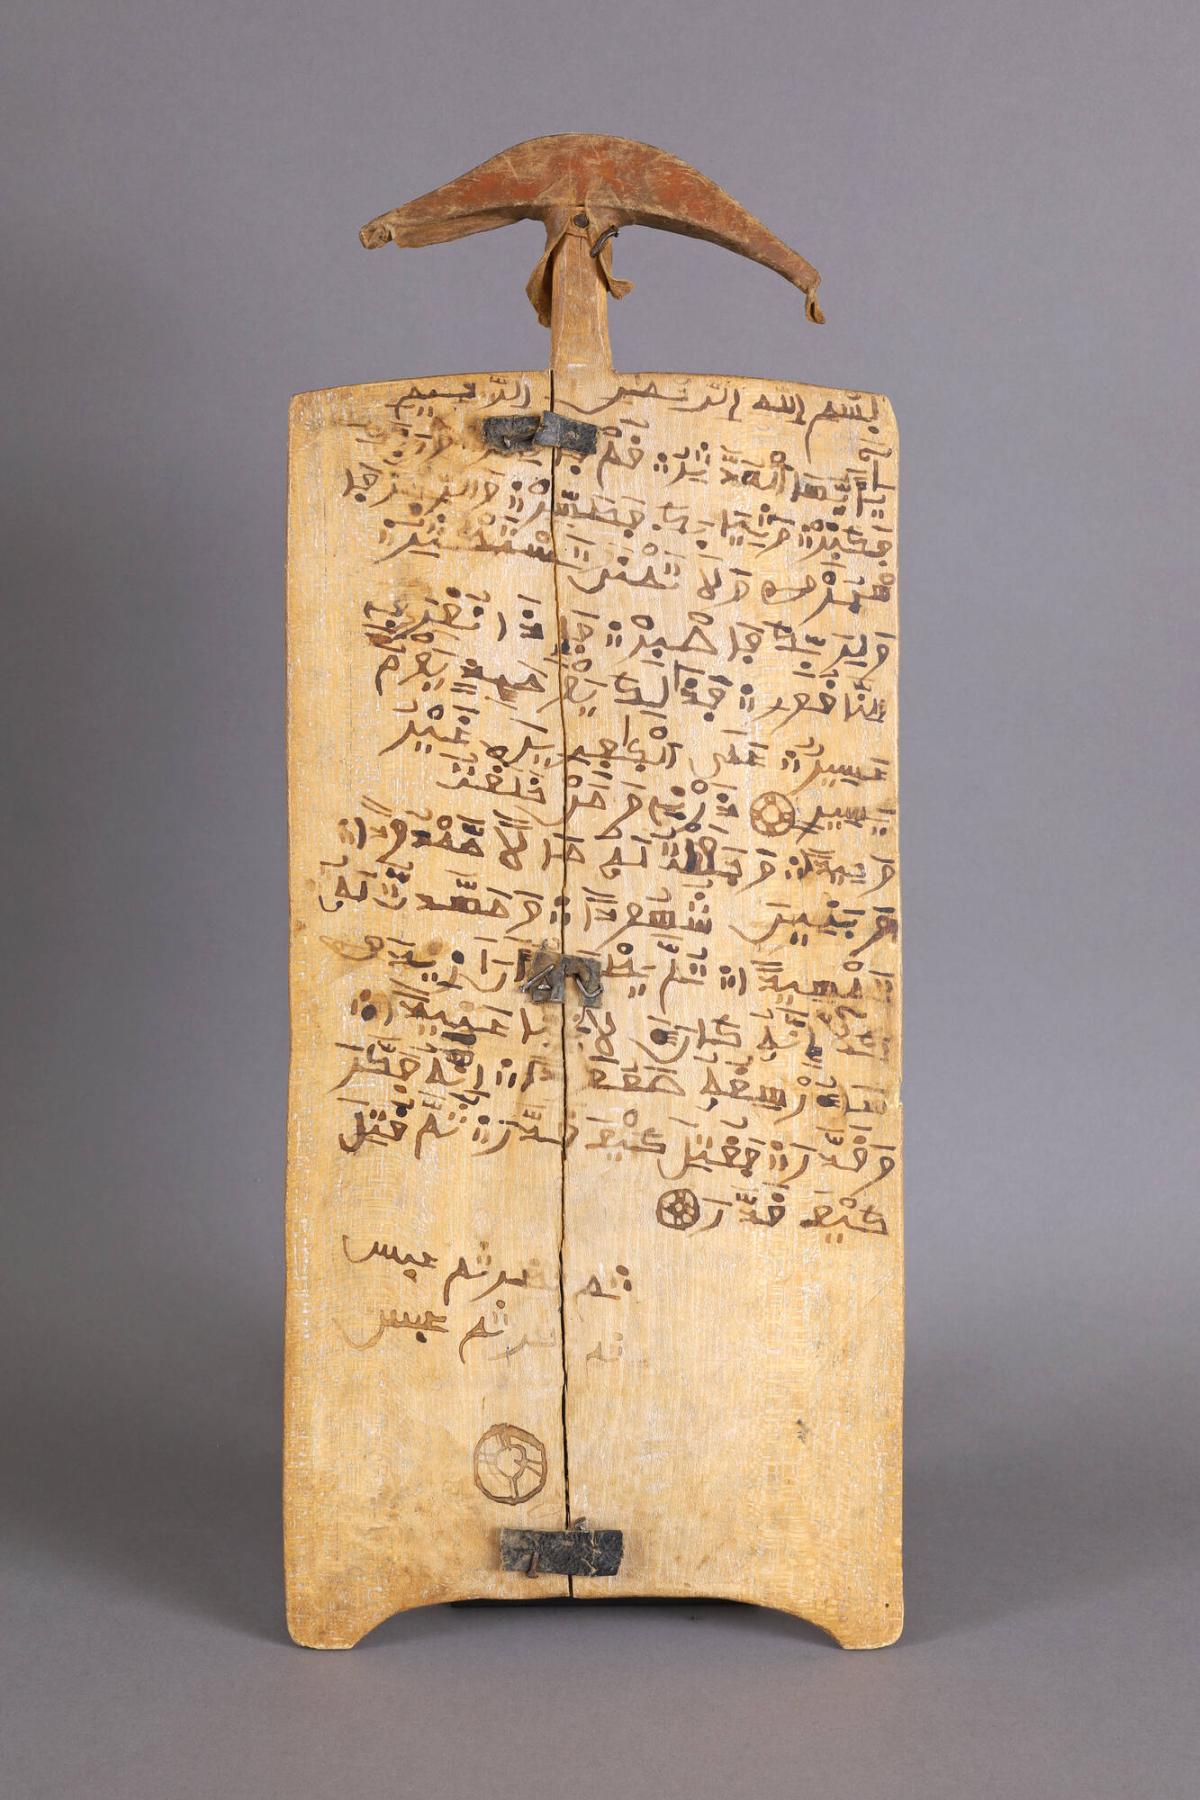 بسم الله الرحمن الرحيم
يأيها المدثر قم فأنذر وربك
فكبر وثيابك فطهر والرجز فا
هجر ولا تمنن تستكثر
ولربك فاصبر فإذا نقر في
الناقور فذلك يومئذ يوم
عسير على الكفرين غير
يسير ذرني ومن خلقت
وحيدا وجعلت له مالا ممدودا
وبنين شهودا ومهدت له
تمهيدا ثم يطمع أن أزيد
كلا إنه كان لأيتنا عنيدا
سأرهقه صعودا إنه فكر
وقدر فقتل كيف قدر ثم قتل
كيف قدر
ثم نظر ثم عبس
ثم نظر ثم عبس